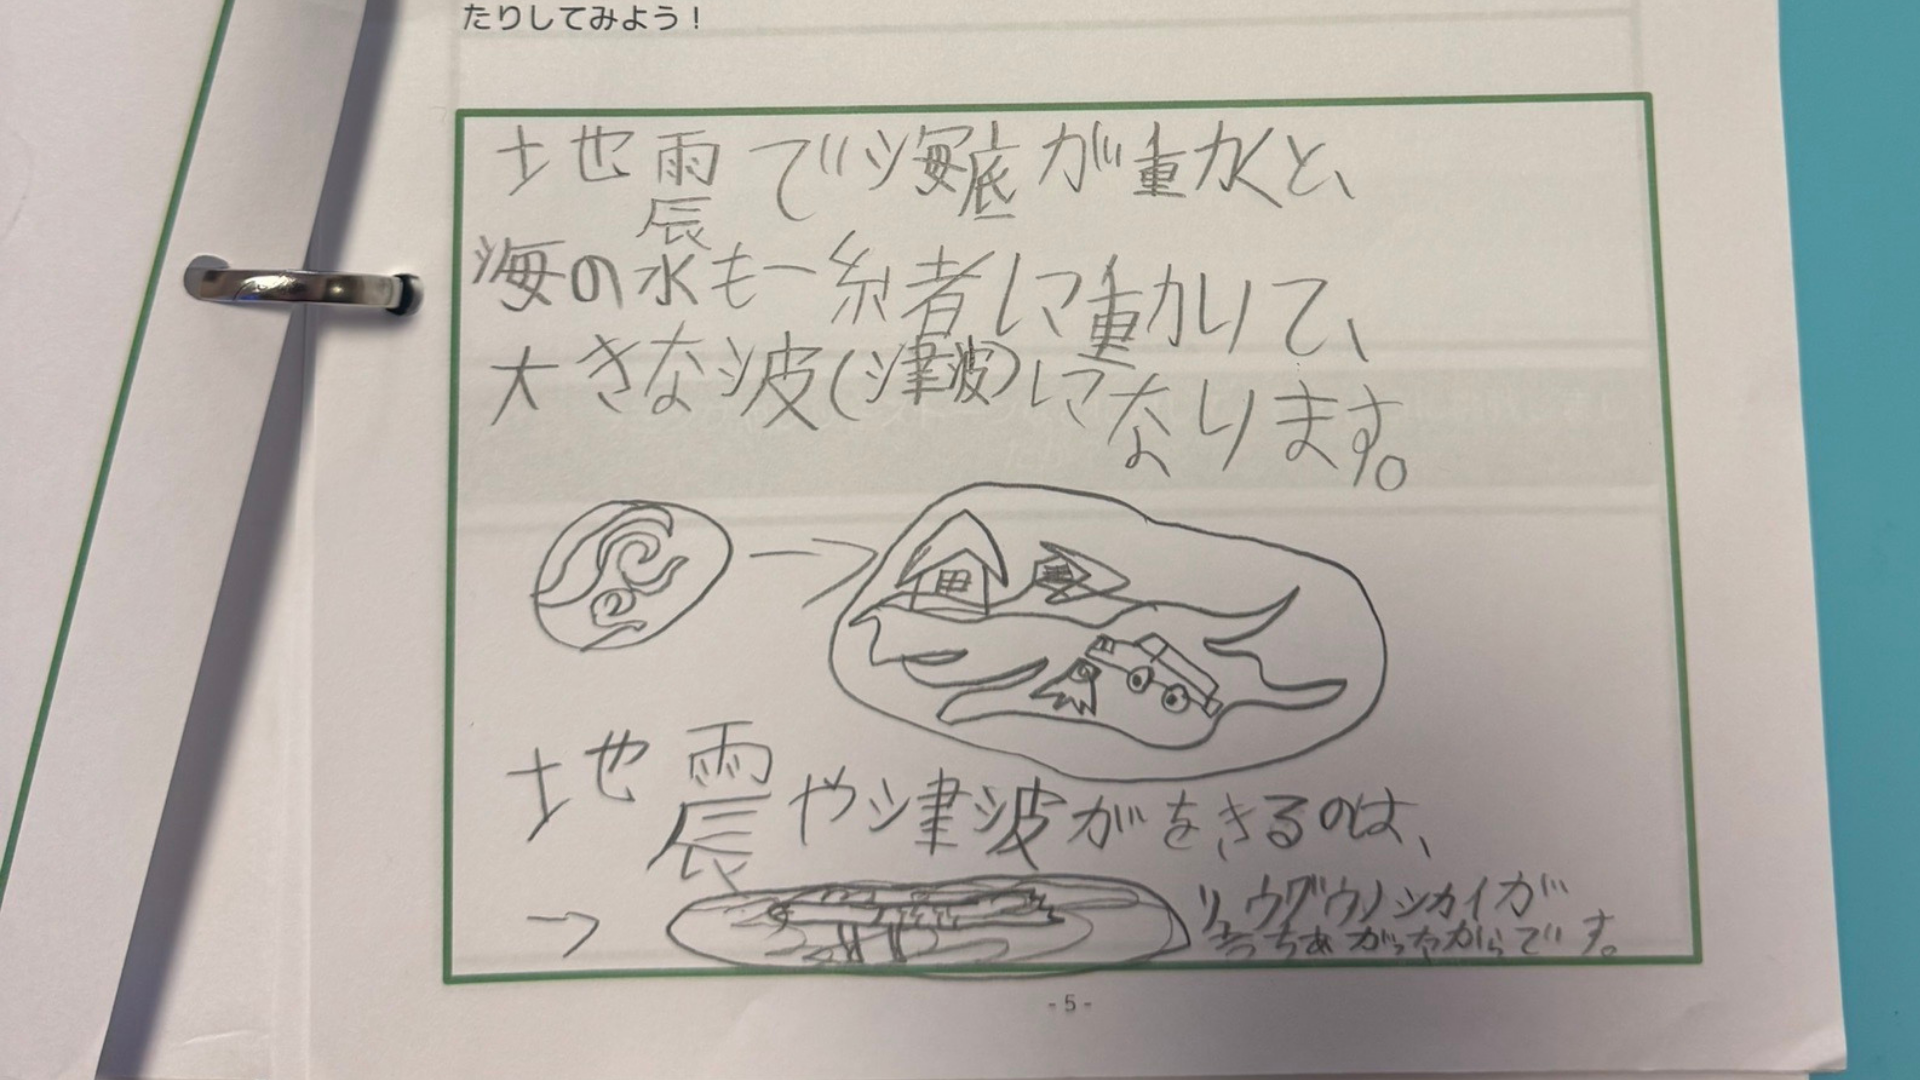 たりしてみよう！
地震で海底が動くと、
海の水も一緒に動いて、
大きな波(津波)になります。
地震や津波がをきるのは、
→
リュウグウノツカイが
うちあがったからです。
- 5 -